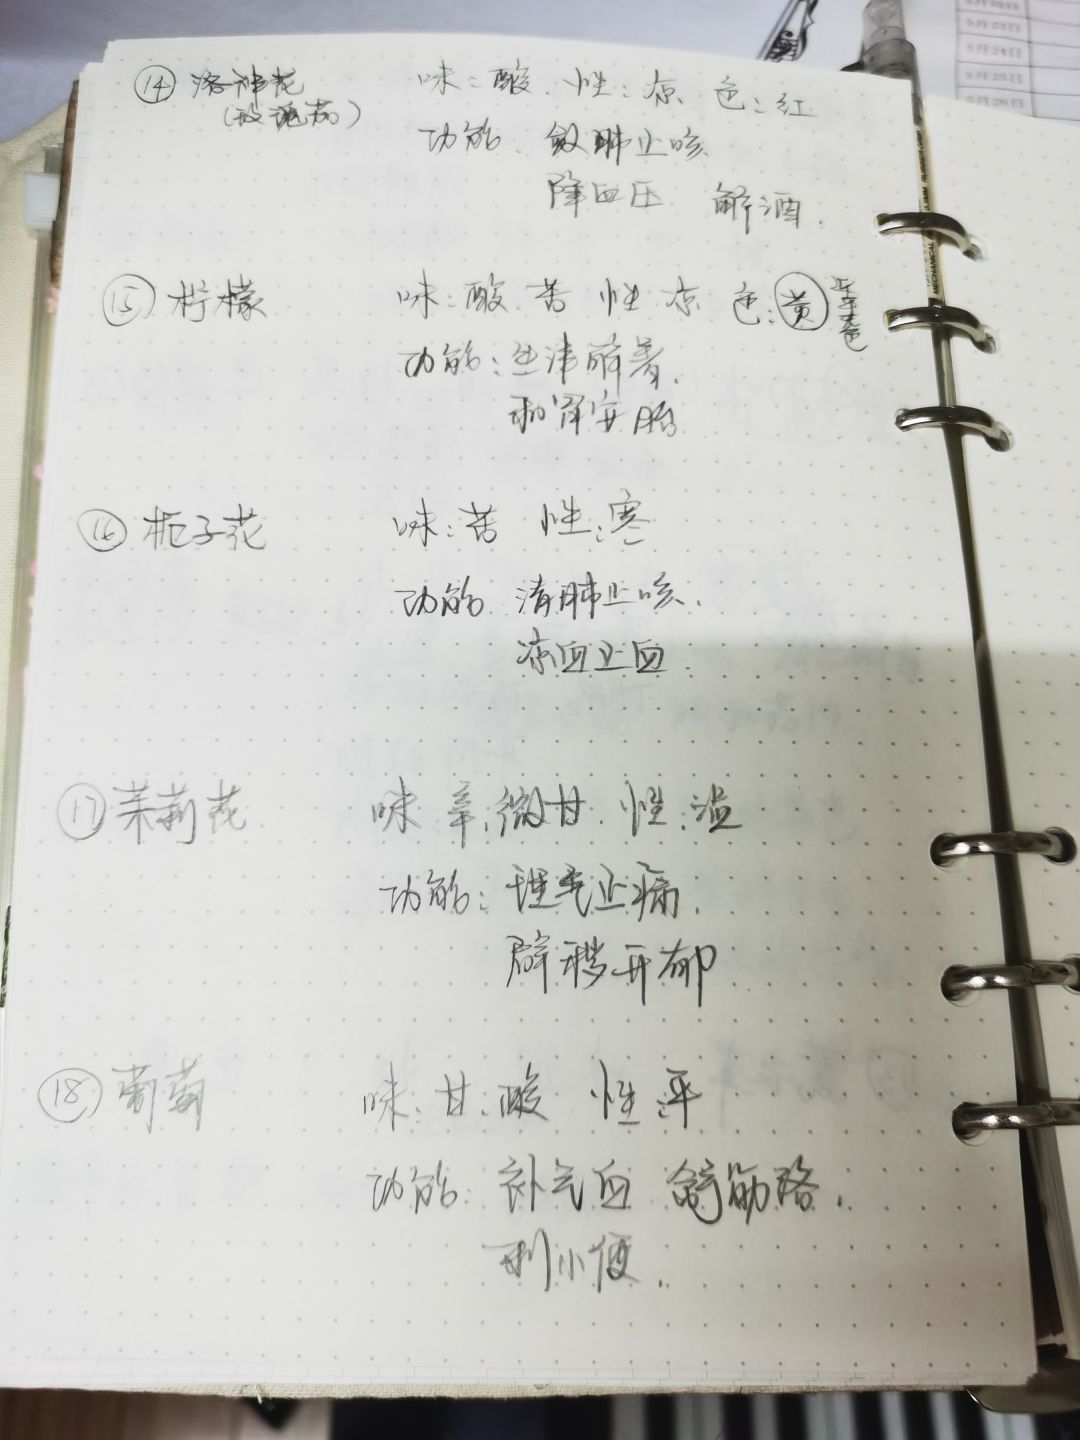 5月23日
5月24日
5月25日
5月26日
⑭ 洛神花 味:酸 性:凉 色:红
(玫瑰茄) 功能 敛肺止咳
降血压 解酒.
⑮ 柠檬 味:酸苦 性凉 色:黄
功能:生津解暑.
和胃安胎
⑯ 栀子花 味:苦 性:寒
功能 清肺止咳.
凉血止血
⑰ 茉莉花 味 辛,微甘. 性:温
功能:理气止痛.
辟秽开郁
⑱ 葡萄 味:甘.酸 性:平
功能:补气血 舒筋络.
利小便.
MECHANICAL